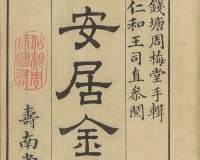 錢塘周梅堂手輯
仁和王司直參閱
安居金
壽南堂